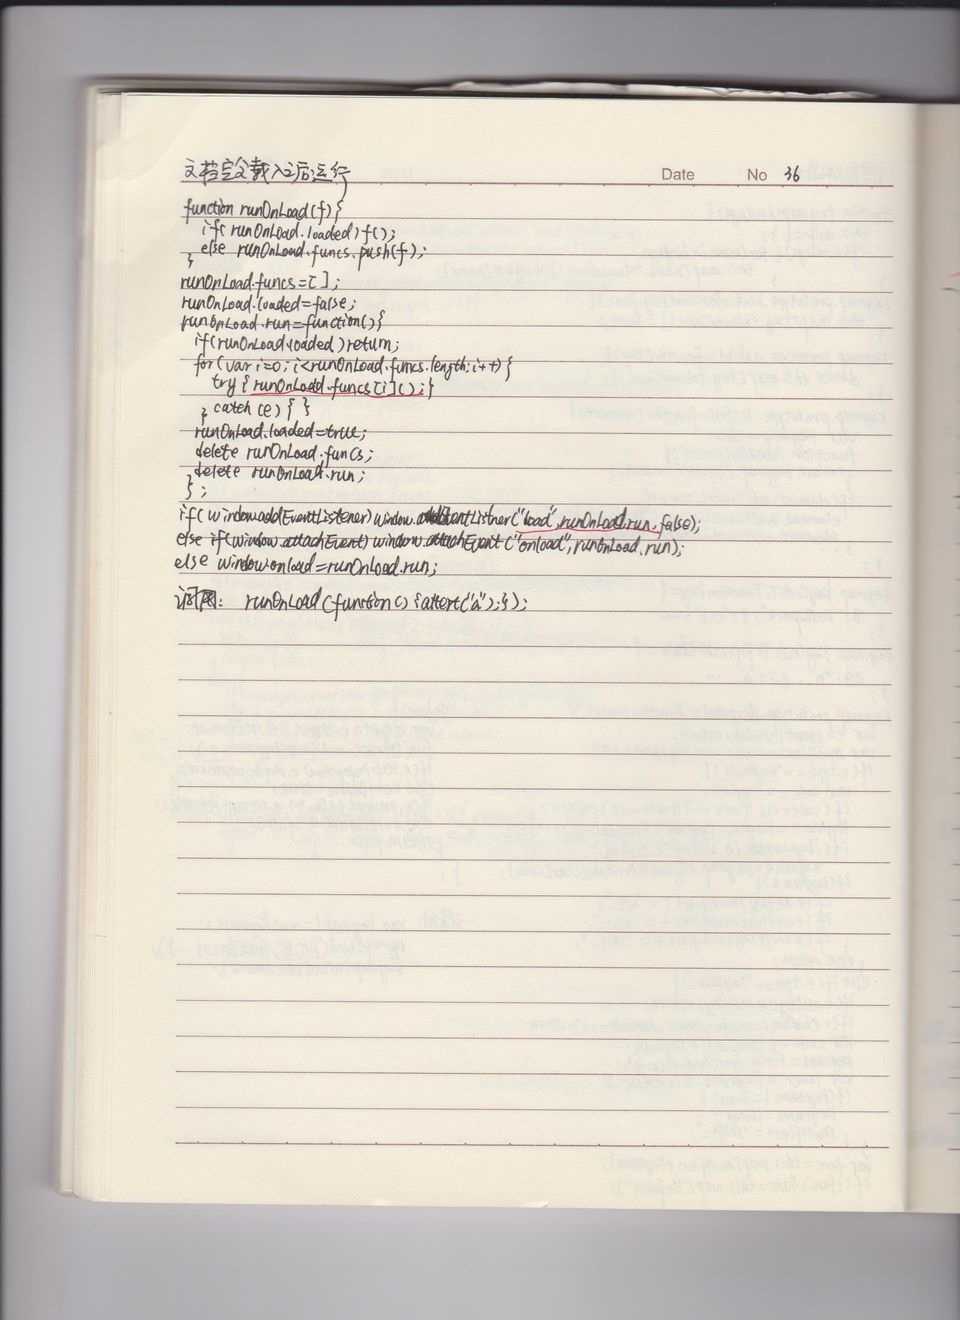 文档完全载入之后运行
Date No 36
function runOnLoad(f){
if(runOnLoad.loaded)f();
else runOnLoad.funcs.push(f);
}
runOnLoad.funcs=[];
runOnLoad.loaded=false;
runOnLoad.run=function(){
if(runOnLoad.loaded)return;
for(var i=0;i<runOnLoad.funcs.length;i++){
try{runOnLoad.funcs[i]();}
}catch(e){}
runOnLoad.loaded=true;
delete runOnLoad.funcs;
delete runOnLoad.run;
};
if(window.addEventListener)window.addEventListner("load",runOnLoad.run,false);
else if(window.attachEvent)window.attachEvent("onload",runOnLoad.run);
else window.onload=runOnLoad.run;
runOnLoad(function(){alert("a");});